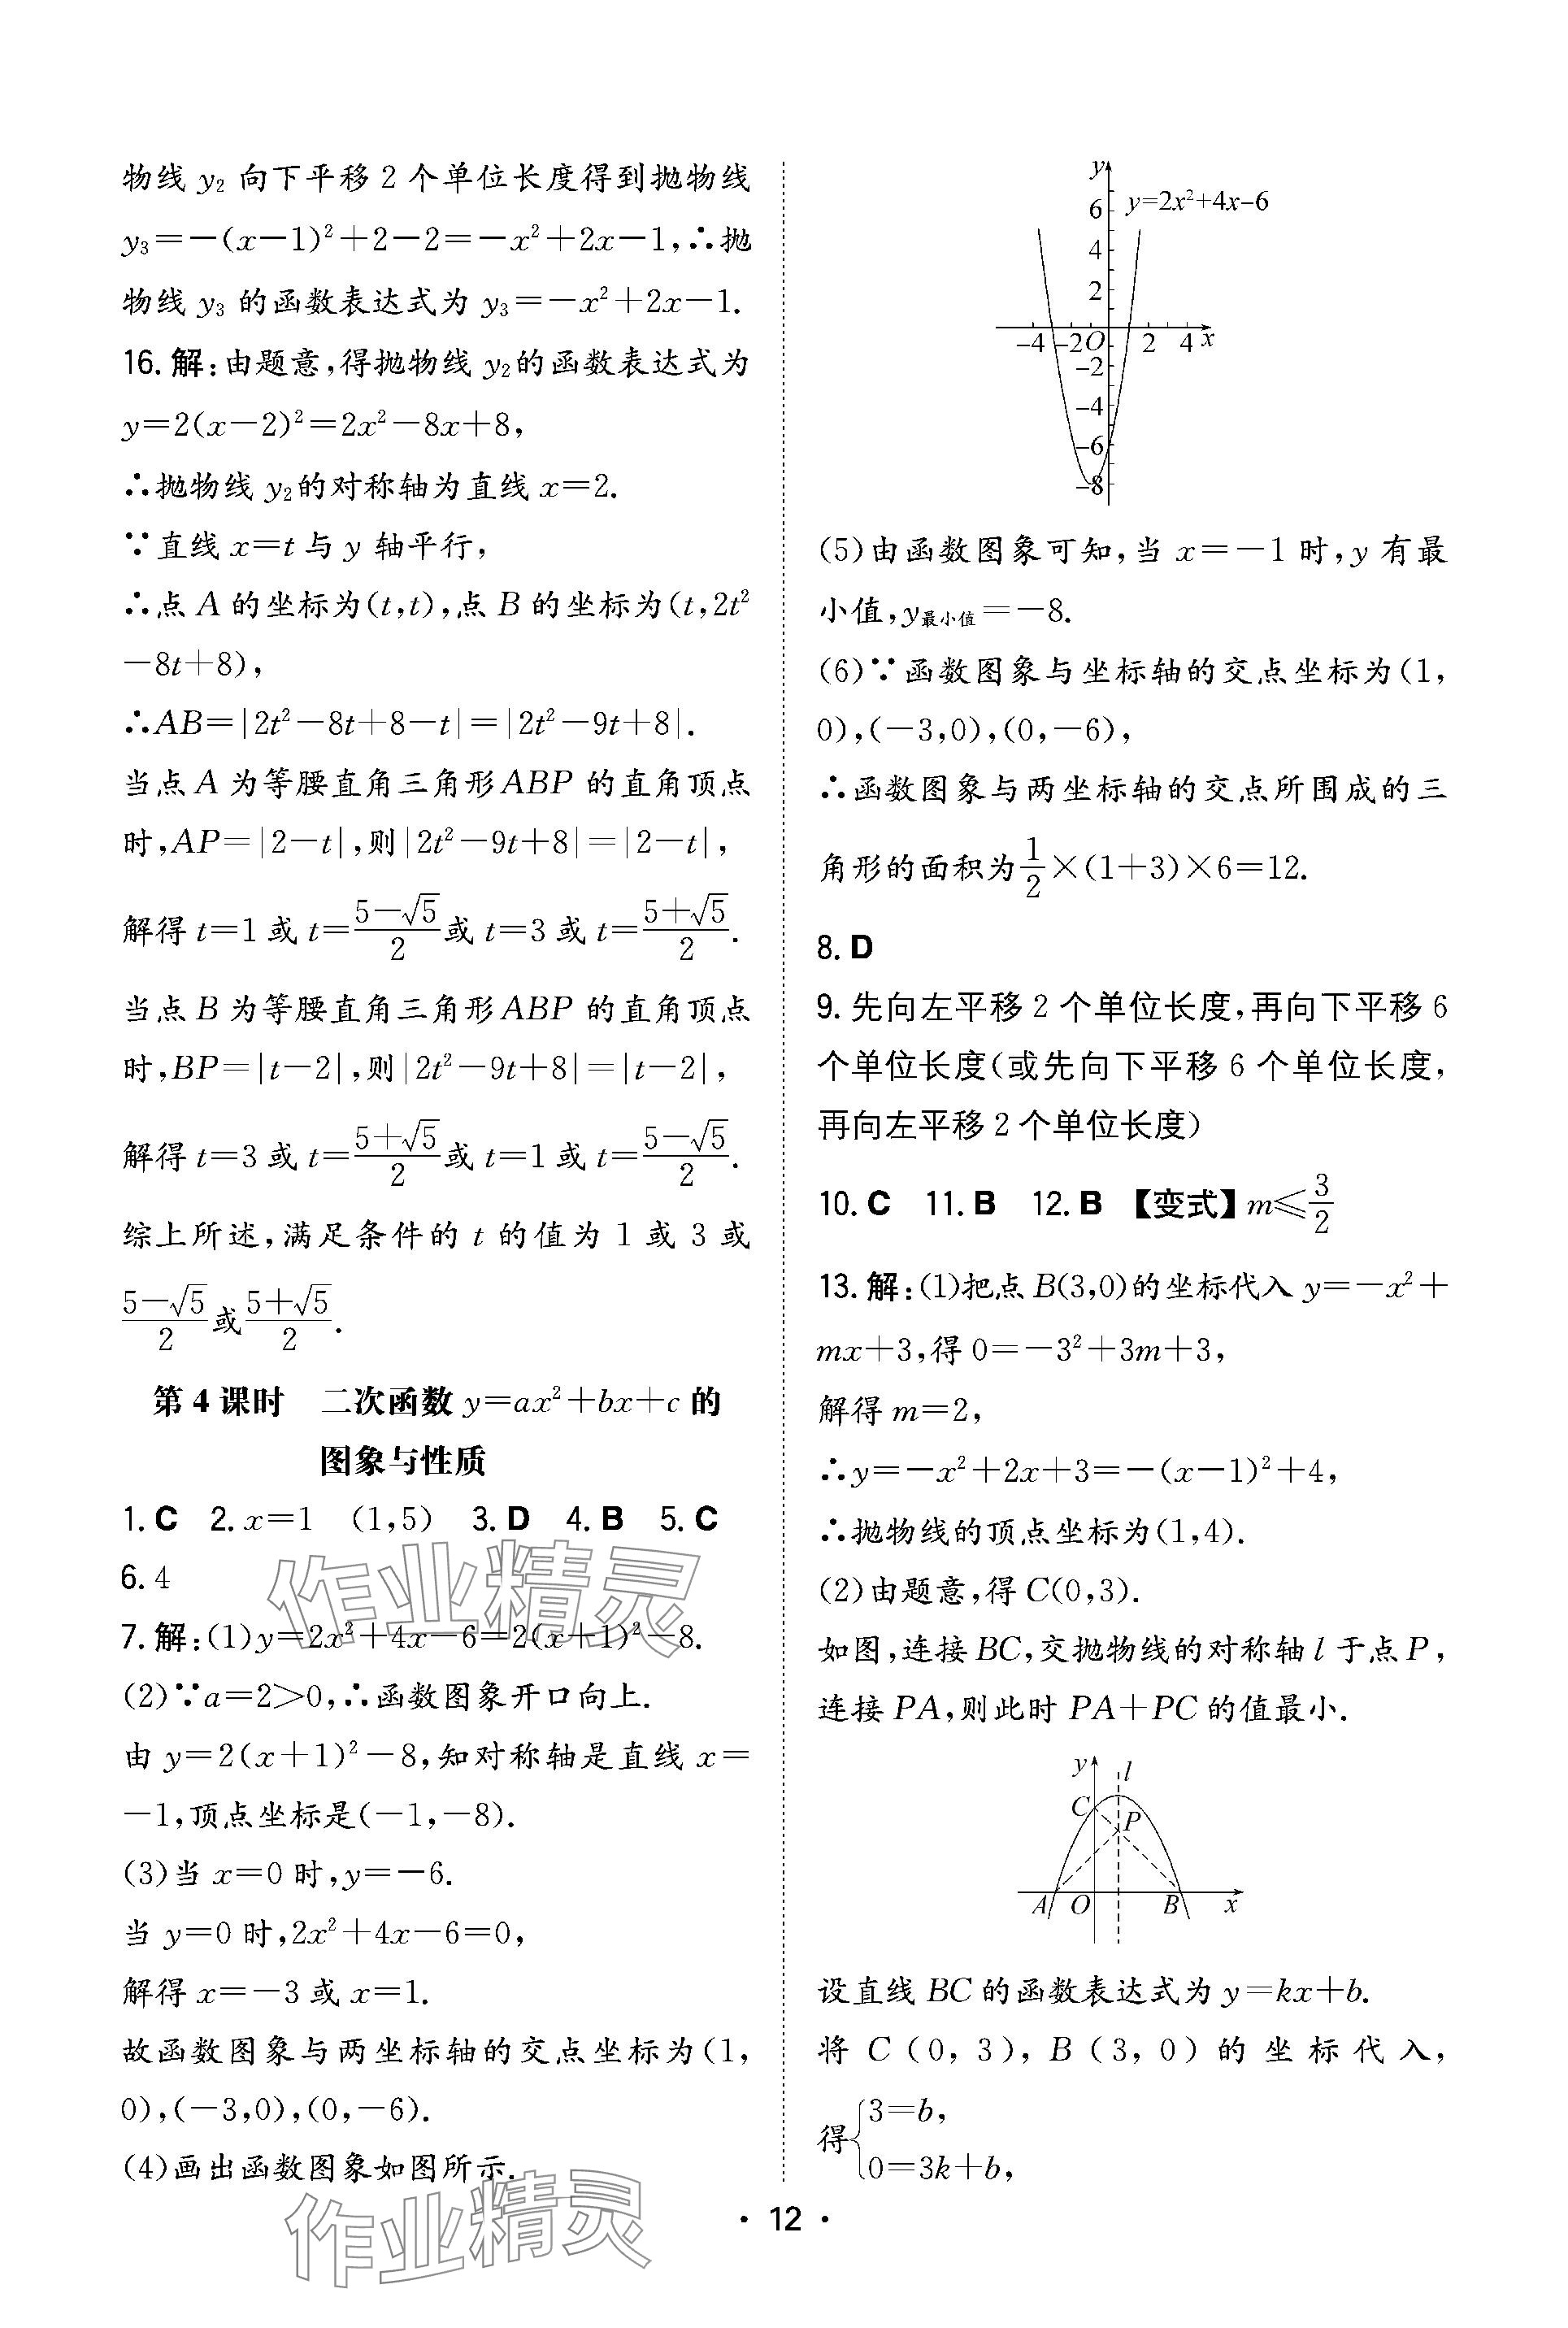 物线 y₂ 向下平移 2 个单位长度得到抛物线
y₃=-(x-1)²+2-2=-x²+2x-1,∴抛
物线 y₃ 的函数表达式为 y₃=-x²+2x-1.
16.解:由题意,得抛物线 y₂的函数表达式为
y=2(x-2)²=2x²-8x+8,
∴抛物线 y₂的对称轴为直线 x=2.
∵直线 x=t 与 y 轴平行,
∴点 A 的坐标为(t,t),点 B 的坐标为(t,2t²
-8t+8),
∴AB=|2t²-8t+8-t|=|2t²-9t+8|.
当点 A 为等腰直角三角形 ABP 的直角顶点
时,AP=|2-t|,则|2t²-9t+8|=|2-t|,
解得 t=1 或 t=(5-√5)/2 或 t=3 或 t=(5+√5)/2.
当点 B 为等腰直角三角形 ABP 的直角顶点
时,BP=|t-2|,则|2t²-9t+8|=|t-2|,
解得 t=3 或 t=(5+√5)/2 或 t=1 或 t=(5-√5)/2.
综上所述,满足条件的 t 的值为 1 或 3 或
(5-√5)/2 或 (5+√5)/2.
第 4 课时 二次函数 y=ax²+bx+c 的
图象与性质
1. C 2. x=1 (1,5) 3. D 4. B 5. C
6. 4
7.解:(1)y=2x²+4x-6=2(x+1)²-8.
(2)∵a=2>0,∴函数图象开口向上.
由 y=2(x+1)²-8,知对称轴是直线 x=
-1,顶点坐标是(-1,-8).
(3)当 x=0 时,y=-6.
当 y=0 时,2x²+4x-6=0,
解得 x=-3 或 x=1.
故函数图象与两坐标轴的交点坐标为(1,
0),(-3,0),(0,-6).
(4)画出函数图象如图所示.
y
6
y=2x²+4x-6
4
2
-4 -2 O 2 4 x
-2
-4
-6
-8
(5)由函数图象可知,当 x=-1 时,y 有最
小值,y最小值=-8.
(6)∵函数图象与坐标轴的交点坐标为(1,
0),(-3,0),(0,-6),
∴函数图象与两坐标轴的交点所围成的三
角形的面积为 1/2×(1+3)×6=12.
8. D
9. 先向左平移 2 个单位长度,再向下平移 6
个单位长度(或先向下平移 6 个单位长度,
再向左平移 2 个单位长度)
10. C 11. B 12. B 【变式】m≤3/2
13.解:(1)把点 B(3,0)的坐标代入 y=-x²+
mx+3,得 0=-3²+3m+3,
解得 m=2,
∴y=-x²+2x+3=-(x-1)²+4,
∴抛物线的顶点坐标为(1,4).
(2)由题意,得 C(0,3).
如图,连接 BC,交抛物线的对称轴 l 于点 P,
连接 PA,则此时 PA+PC 的值最小.
y l
C
P
A O B x
设直线 BC 的函数表达式为 y=kx+b.
将 C(0,3),B(3,0)的坐标代入,
得{3=b,
0=3k+b,
· 12 ·
作业精灵
作业精灵